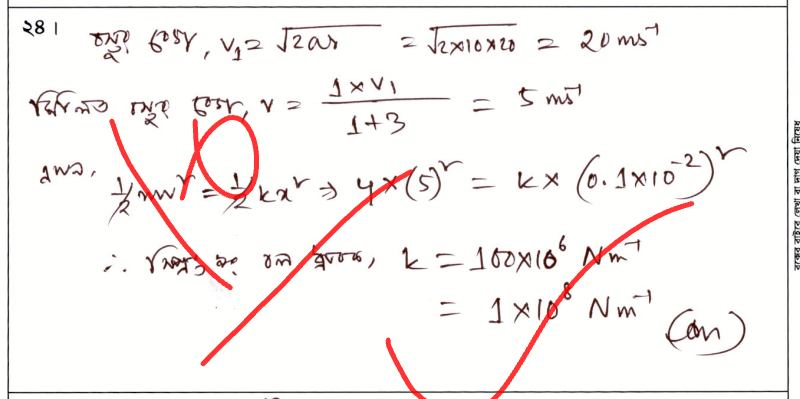 ২৪। বস্তুর বেগ, v₁ = √2as = √2×10×20 = 20 ms⁻¹
মিলিত বস্তুর বেগ, v = (1×v₁)/(1+3) = 5 ms⁻¹
এখন, ½mv² = ½kx² ⇒ 4×(5)² = k×(0.1×10⁻²)²
∴ স্প্রিং এর বল ধ্রুবক, k = 100×10⁶ Nm⁻¹
= 1×10⁸ Nm⁻¹ (Ans)
বক্সের বাইরে লেখা বা দাগ দেয়া নিষেধ